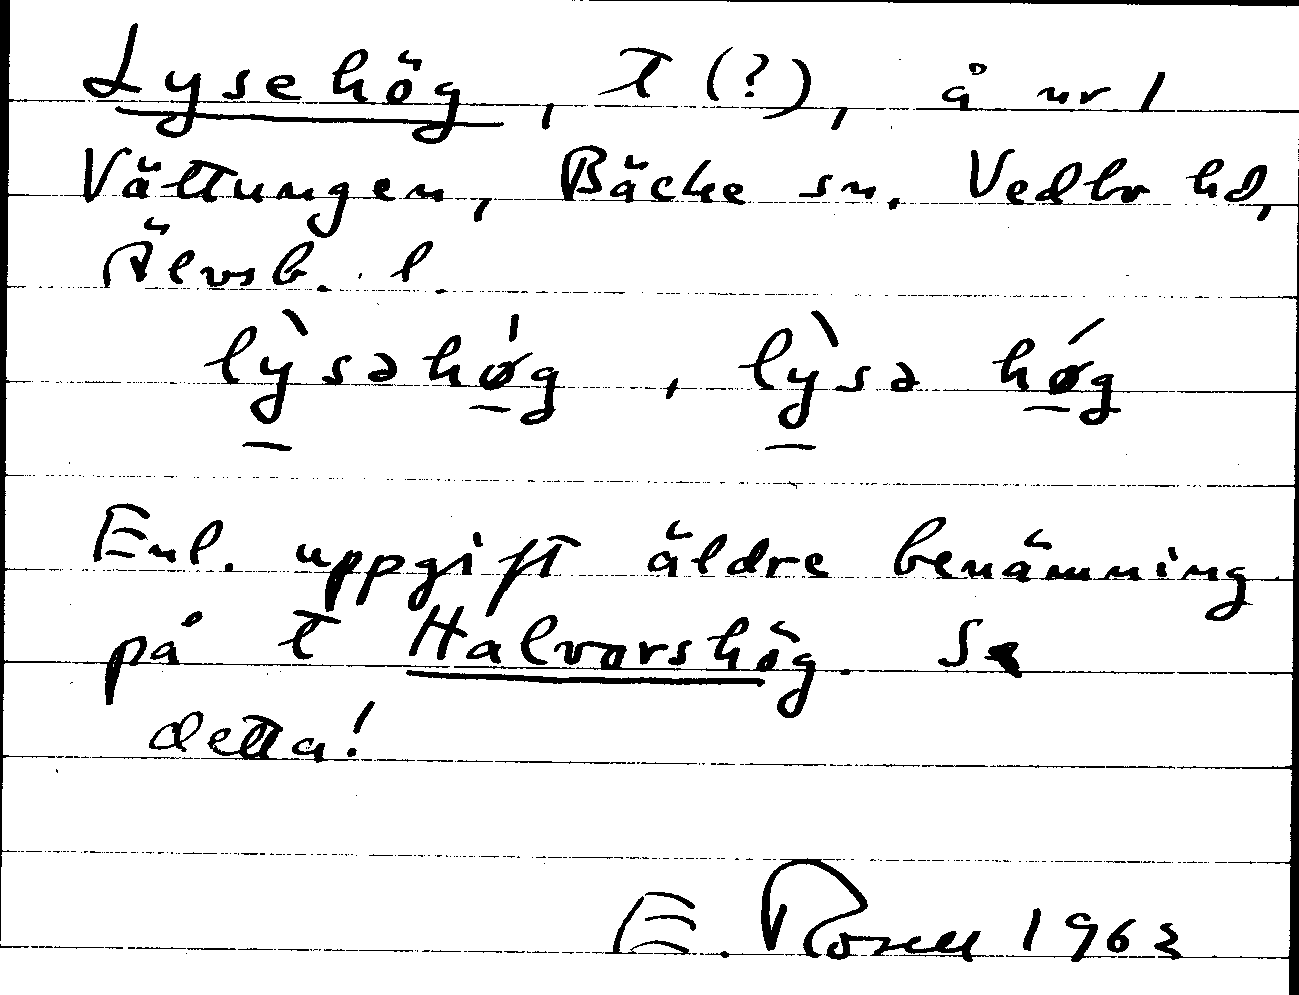 Lysehög, T (?), å nr 1
Vättungen, Bäcke sn. Vedbo hd,
Älvsb. l.
lỳsəhǿg, lỳsə hǿg
Enl. uppgift äldre benämning
på t Halvorshög. Se
detta!
E. Rosell 1963